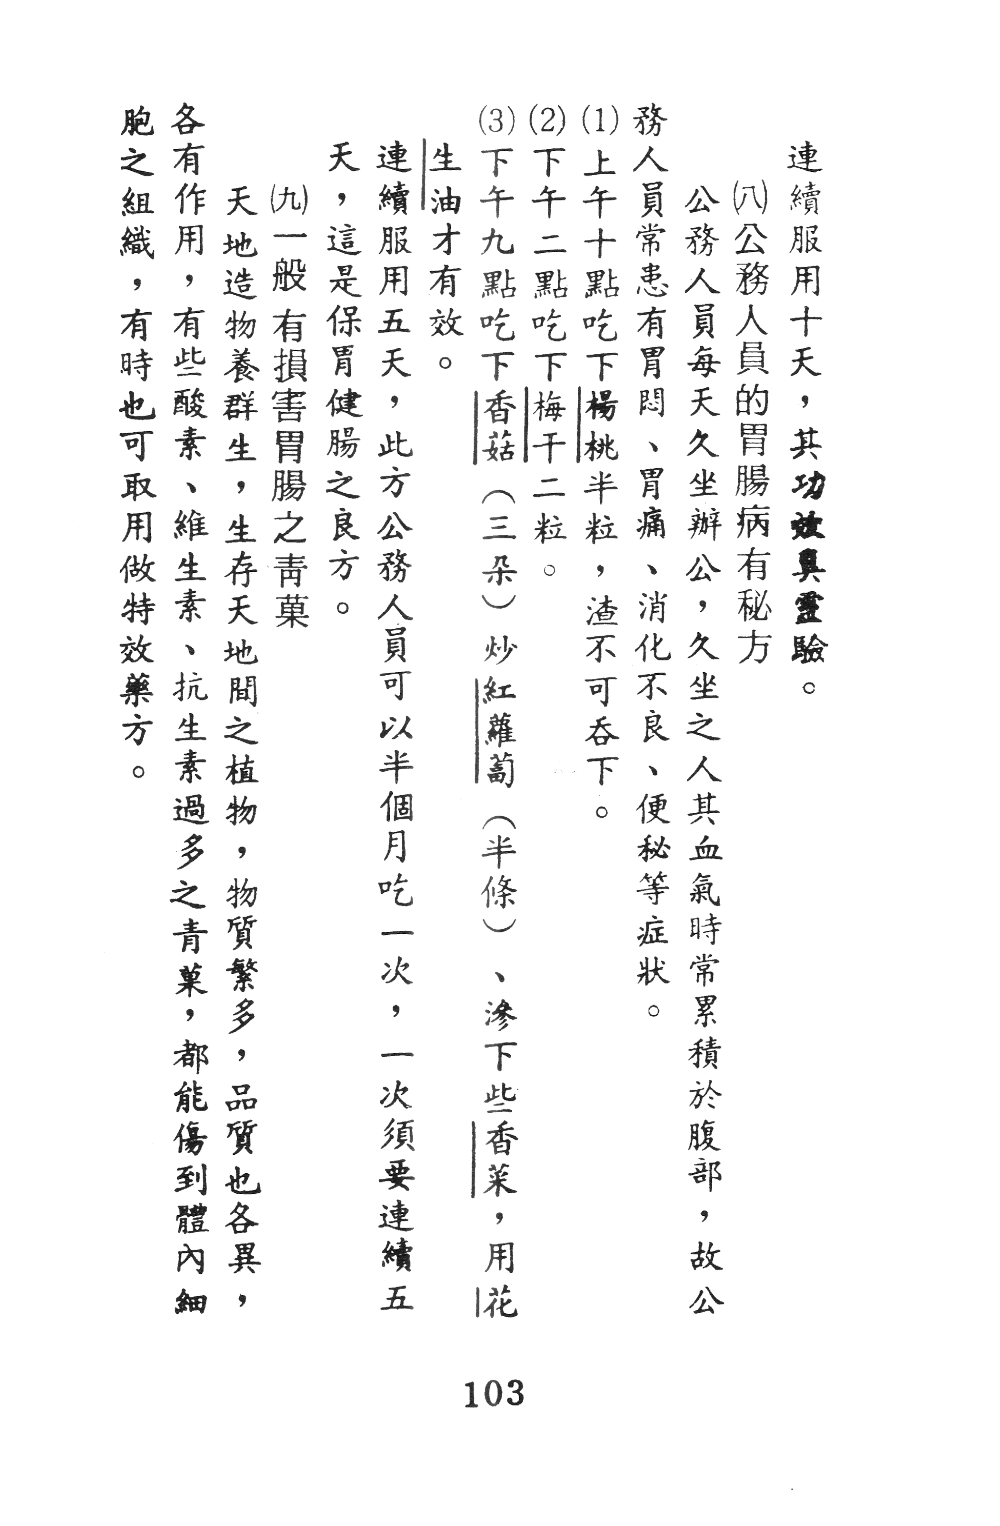 連續服用十天，其功效真靈驗。
㈧公務人員的胃腸病有秘方
公務人員每天久坐辦公，久坐之人其血氣時常累積於腹部，故公
務人員常患有胃悶、胃痛、消化不良、便秘等症狀。
⑴上午十點吃下楊桃半粒，渣不可吞下。
⑵下午二點吃下梅干二粒。
⑶下午九點吃下香菇（三朵）炒紅蘿蔔（半條）、滲下些香菜，用花
生油才有效。
連續服用五天，此方公務人員可以半個月吃一次，一次須要連續五
天，這是保胃健腸之良方。
㈨一般有損害胃腸之青菓
天地造物養群生，生存天地間之植物，物質繁多，品質也各異，
各有作用，有些酸素、維生素、抗生素過多之青菓，都能傷到體內細
胞之組織，有時也可取用做特效藥方。
103